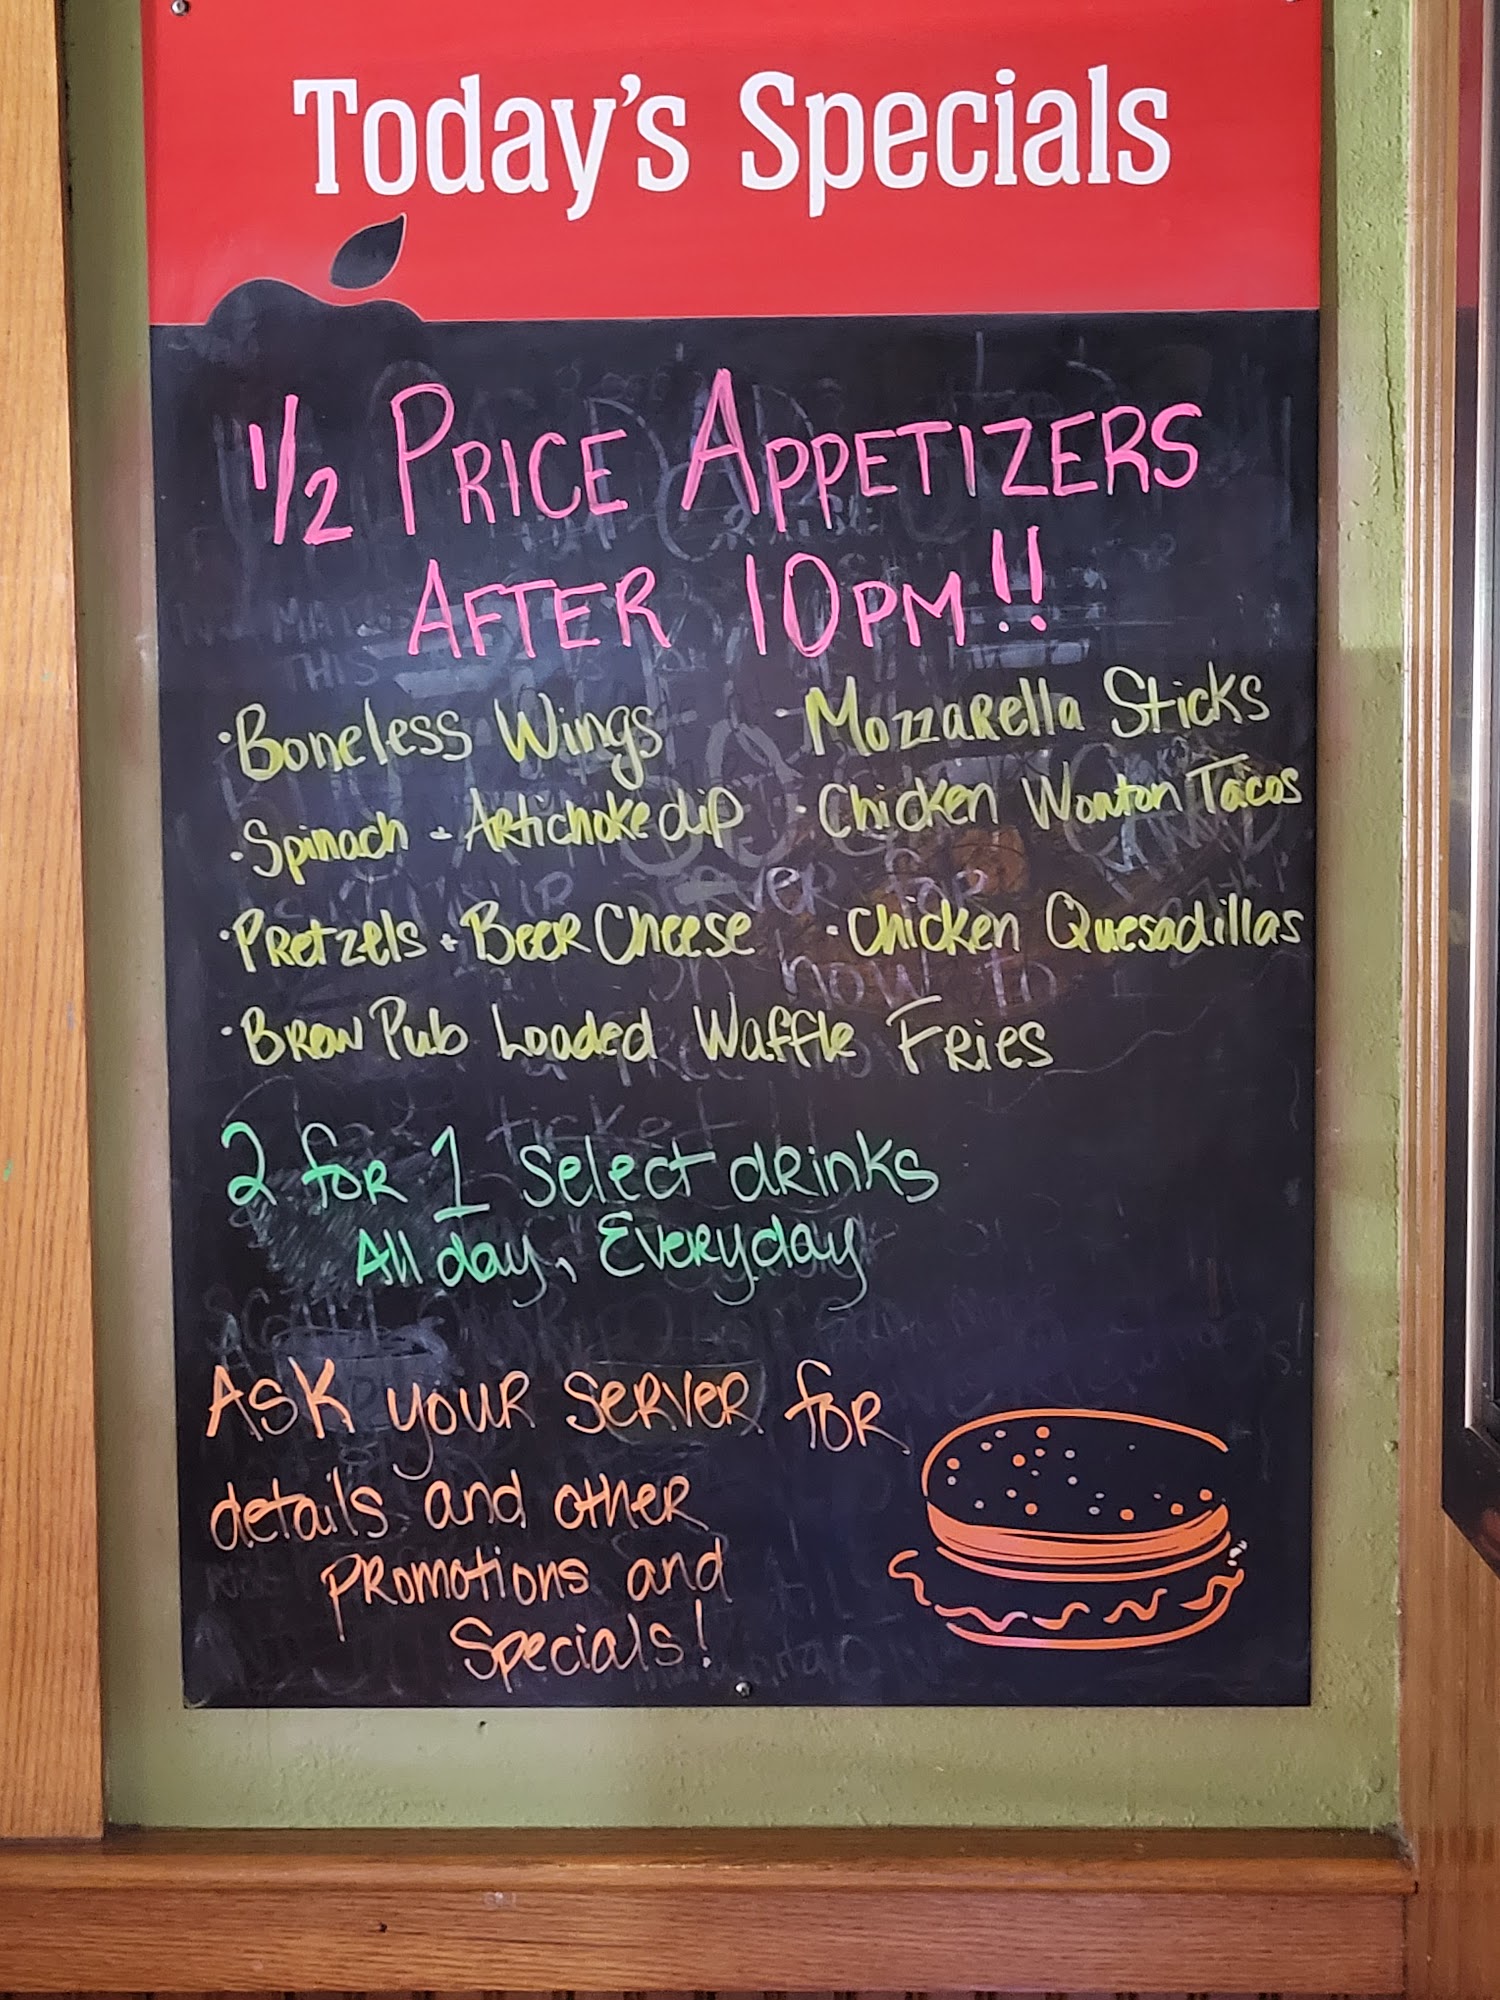 Today's Specials
1/2 PRICE APPETIZERS
AFTER 10PM!!
·Boneless Wings ·Mozzarella Sticks
·Spinach + Artichoke dip ·Chicken Wonton Tacos
·Pretzels + Beer Cheese ·Chicken Quesadillas
·Brew Pub Loaded Waffle Fries
2 for 1 select drinks
All day, Everyday
Ask your server for
details and other
promotions and
Specials!